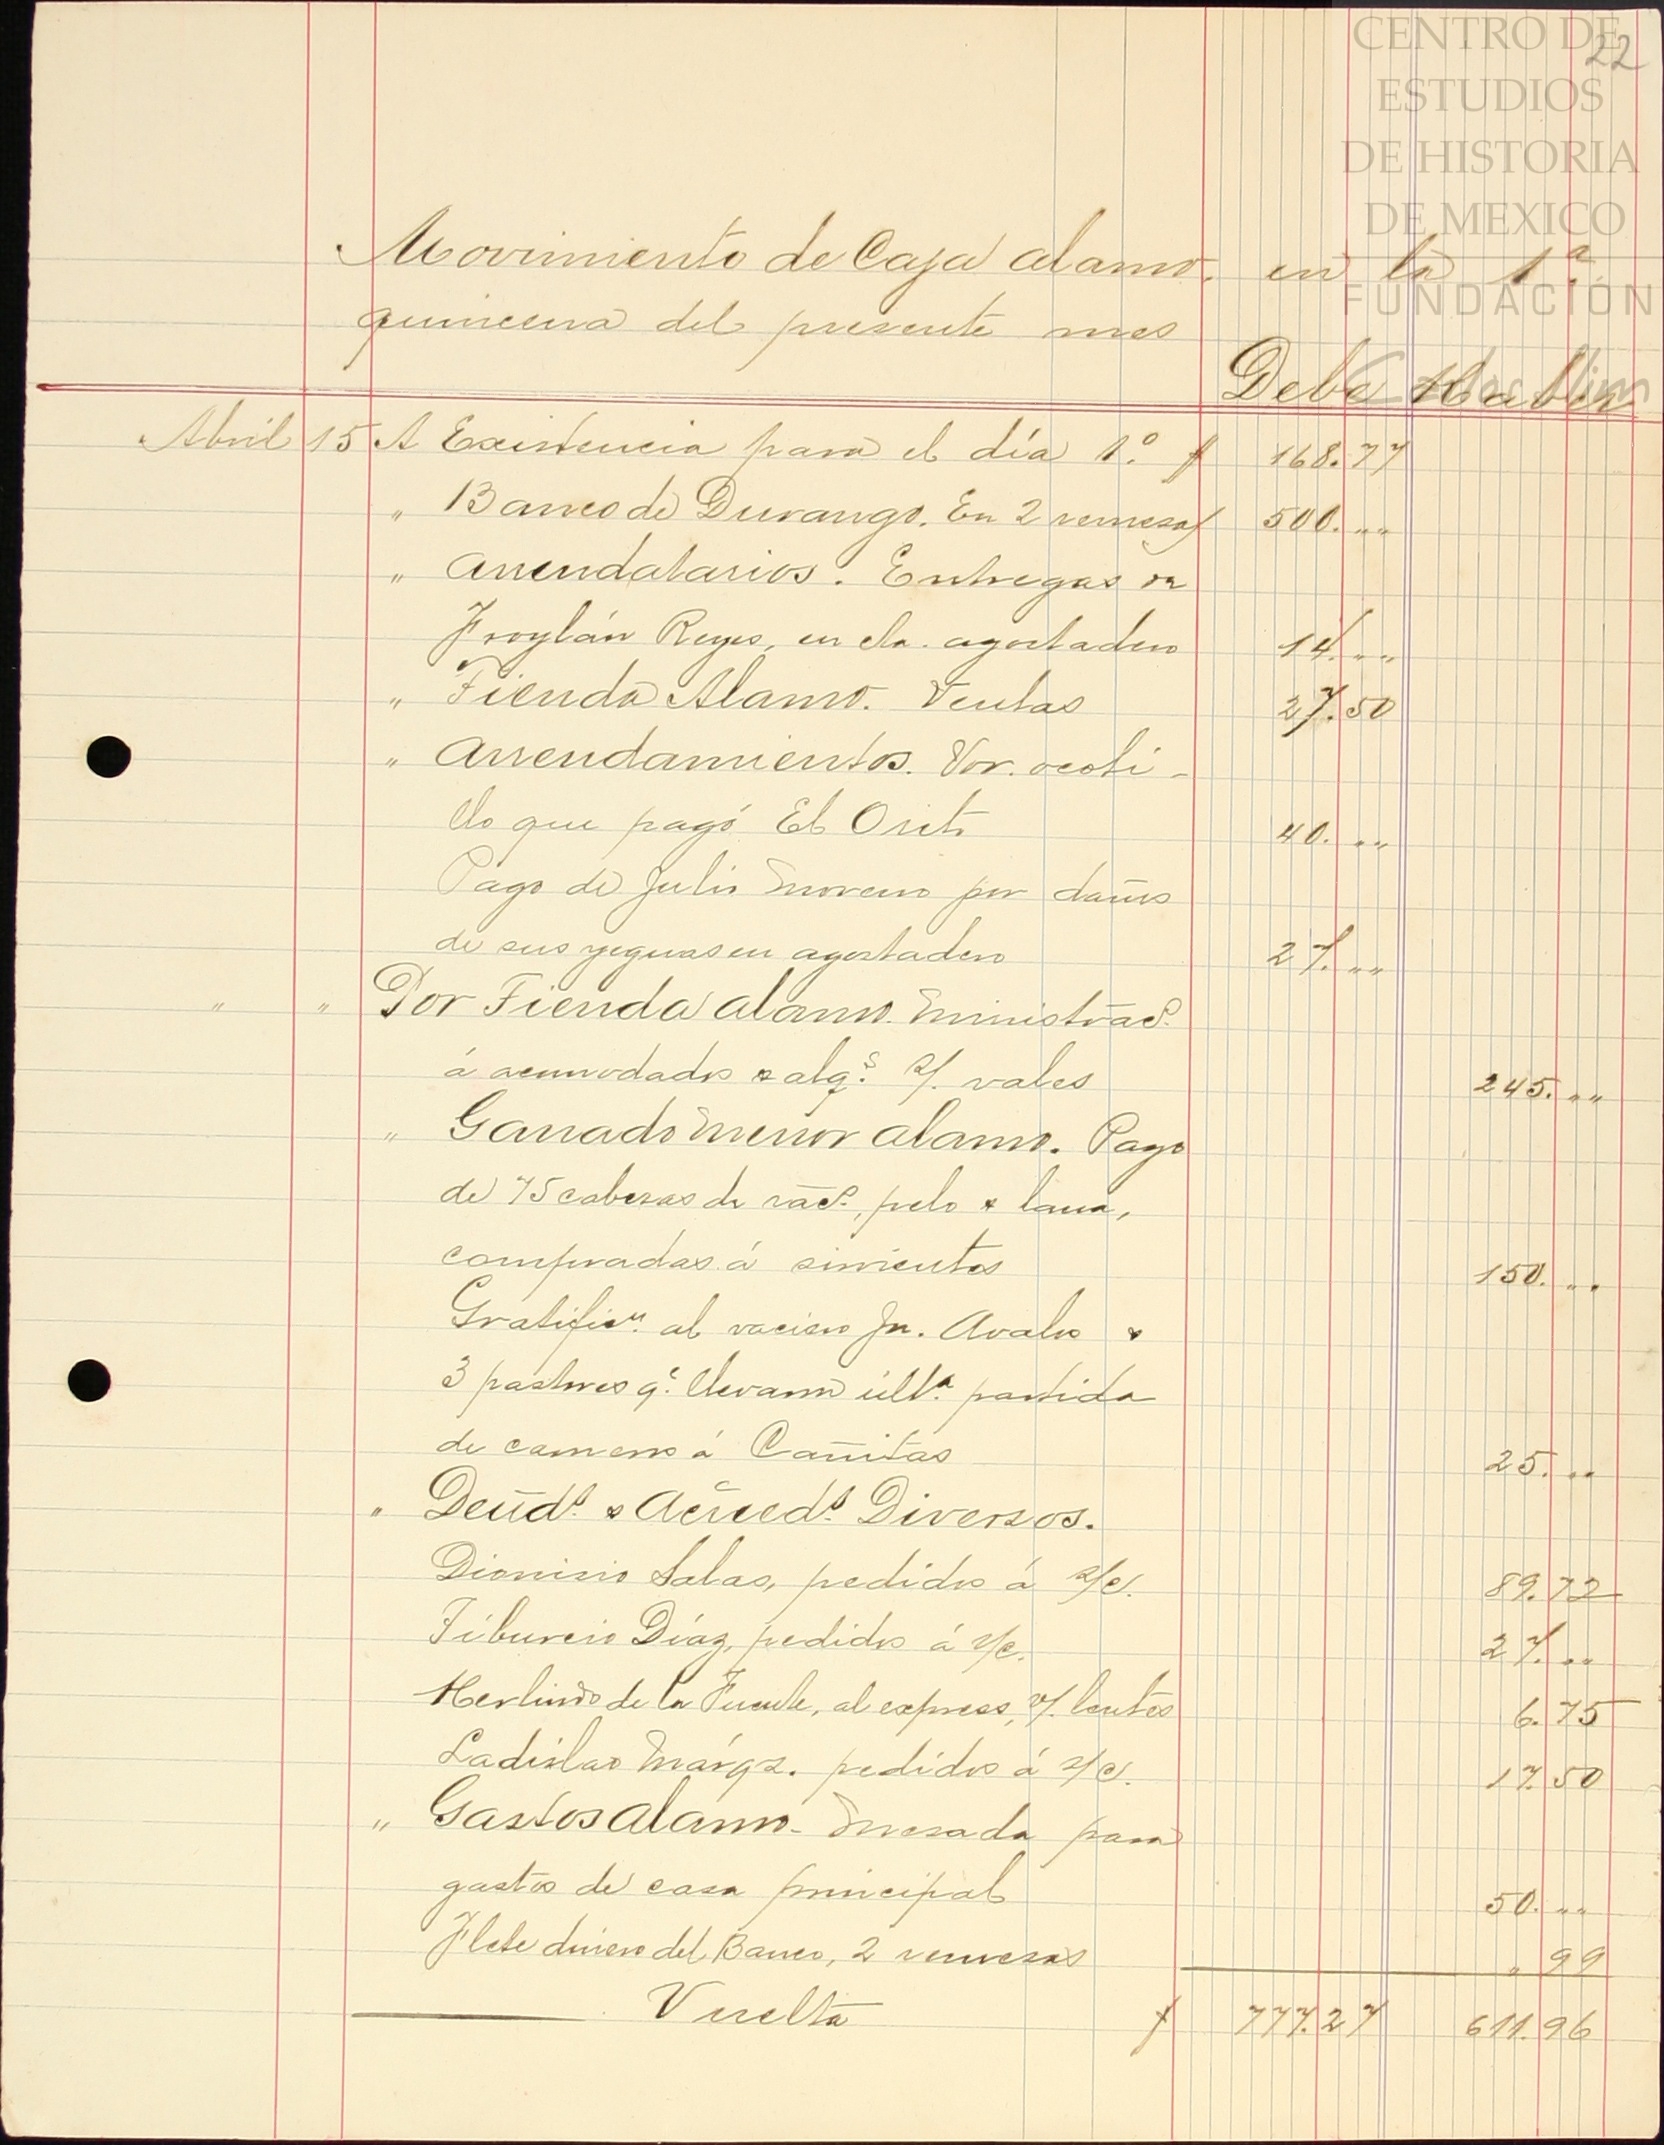 CENTRO DE
ESTUDIOS
DE HISTORIA
DE MEXICO
FUNDACIÓN
22
Movimiento de Caja Alamo. en la 1ª
quincena del presente mes
Debe Haber
Abril 15 A Existencia para el día 1º. $ 168.77
" Banco de Durango. En 2 remesas 500. ""
" Arrendatarios. Entregas de
Froylán Reyes, en cta. agostadero 14. ""
" Tienda Alamo. Ventas 27.50
" Arrendamientos. Por. ocoti-
llo que pagó El Orito 40. ""
Pago de Julio Moreno por daños
de sus yeguas en agostadero 27. ""
" " Por Tienda Alamo. Ministrac.
á acomodados & alqs. s/. vales 245. ""
" Ganado Menor Alamo. Pago
de 75 cabezas de , pelo & lana,
compradas á sirvientes 150. ""
Gratificn. al vaciero Jn. Avalos &
3 pastores qe. llevaron últa. partida
de carneros á Cañitas 25. ""
" Deuds. & Acreeds. Diversos.
Dionisio Salas, pedidos á s/c. 89.72
Tiburcio Díaz, pedidos á s/c. 27. ""
Herlindo de la Fuente, al express, v/. lentes 6.75
Ladislao Márqz. pedidos á s/c. 17.50
" Gastos Alamo - Mesada para
gastos de casa principal 50. ""
Flete dinero del Banco, 2 remesas " 99
Vuelta $ 777.27 611.96